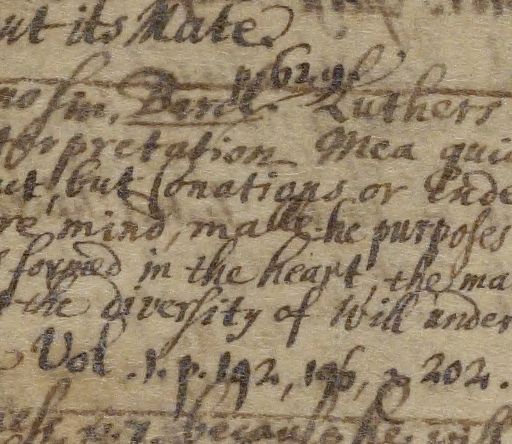 ut its Mate.
no sin, Luthers
terpretation Mea quid
but, but or Ende
re mind, make he purposes
formed in the heart, the ma
the diversity of Will under
Vol. 1. p. 192, 196, 202.
because he